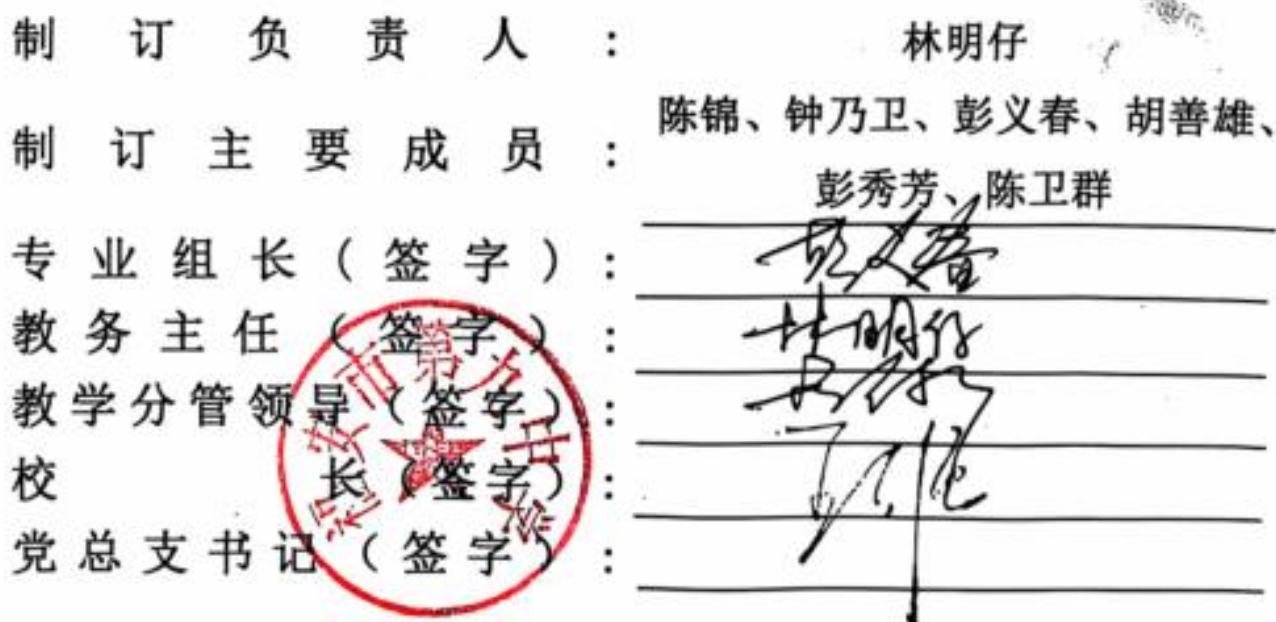 制订负责人：林明仔
制订主要成员：陈锦、钟乃卫、彭义春、胡善雄、
彭秀芳、陈卫群
专业组长（签字）：彭义春
教务主任（签字）：林明仔
教学分管领导（签字）：
校长（签字）：
党总支书记（签字）：